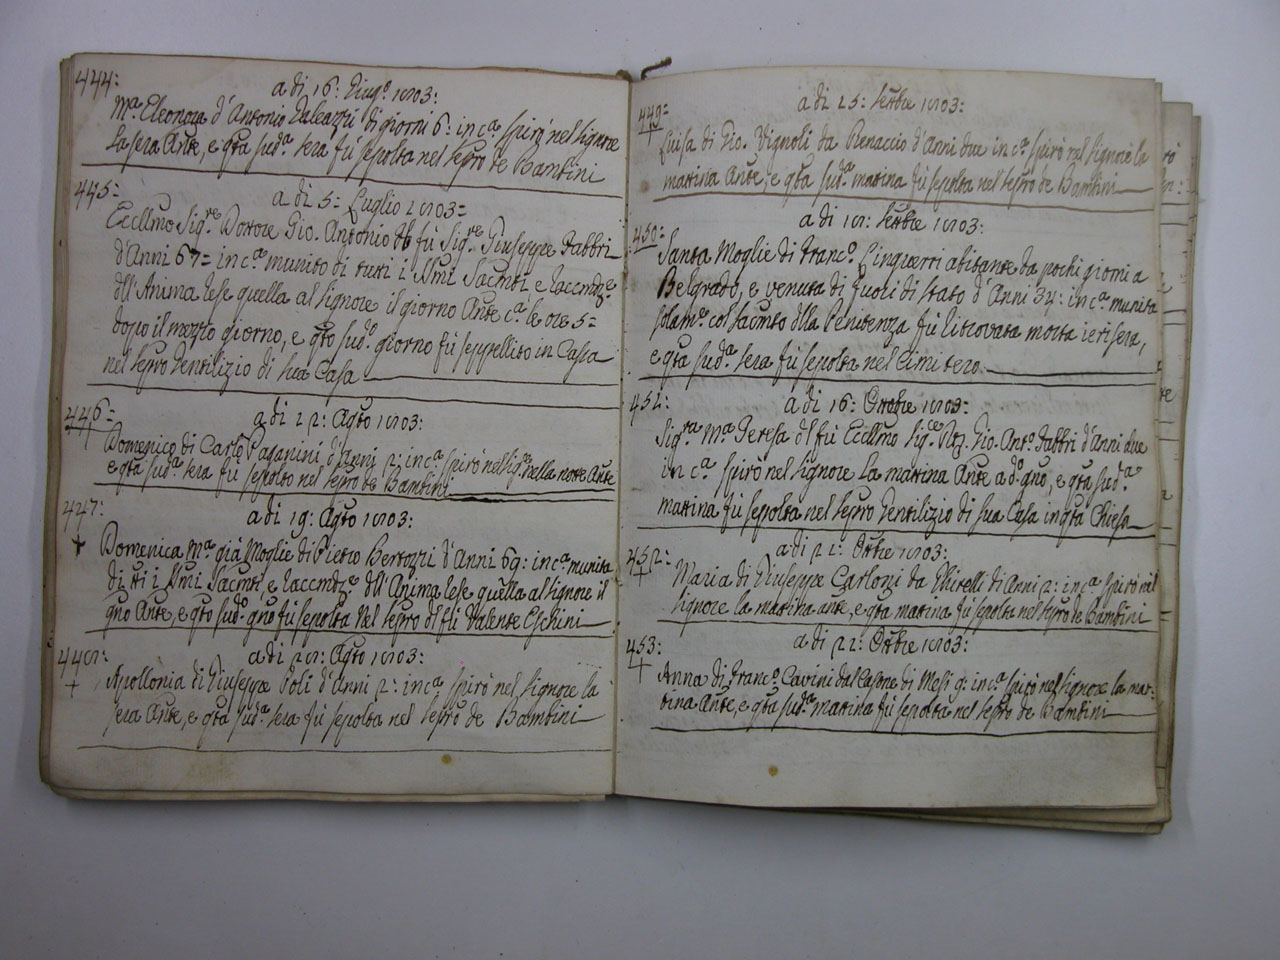 444:
a di 16: Giugº 1803:
Mª Eleonora d'Antonio Galeazzi di giorni 6: in cª spirò nel Signore
La sera Ante, e qta sudª sera fù sepolta nel Sepro de Bambini
445:
a di 5= Luglio 1803=
Eccllmo Sigre Dottore Gio. Antonio del fù Sigre Giuseppe Fabbri
d'Anni 67= in cª munito di tutti i SSmi Sacmti e raccmdze
dll'Anima rese quella al Signore il giorno Ante cª le ore 5=
dopo il mezzo giorno, e qto sudº giorno fù seppellito in Cassa
nel Sepro Gentilizio di sua Casa
446=
a di 12: Agto 1803:
Domenico di Carlo Paganini d'anni 2: in cª spirò nel Sigre nella notte Ante
e qta sudª sera fù sepolto nel Sepro de Bambini
447:
a di 19: Agto 1803:
Domenica Mª già Moglie di Pietro Bertozzi d'Anni 69: in cª munita
di tti i SSmi Sacmti, e raccmdze dll'Anima rese quella al Signore il
gno Ante, e qto sudº gno fù sepolta nel Sepro dlli Valente Eschini
448:
a di 28: Agto 1803:
Apollonia di Giuseppe Poli d'Anni 2: in cª spirò nel Signore la
sera Ante, e qta sudª sera fù sepolta nel Sepro de Bambini
449=
a di 25: Settbre 1803:
Luisa di Gio. Vignoli da Pienaccio d'Anni due in cª spirò nel Signore la
mattina Ante, e qta sudª mattina fù sepolta nel Sepro de Bambini
450=
a di 18: Settbre 1803:
Santa Moglie di Francº Cinquerri abitante da pochi giorni a
Belgrado, e venuta di fuori di stato d'Anni 34: in cª munita
solamº col Sacmto dlla Penitenza fù ritrovata morta ieri sera,
e qta sudª sera fù sepolta nel Cimitero
451:
a di 16: Ottobre 1803:
Sigra Mª Teresa dl fù Eccllmo Sigre Dtt. Gio. Antº Fabbri d'Anni due
in cª spirò nel Signore La mattina Ante a dº gno, e qta sudª
mattina fù sepolta nel Sepro Gentilizio di sua Casa in qta Chiesa
452:
a di 21: Ottbre 1803:
Maria di Giuseppe Carlonzi da Ghirelli di Anni 2: in cª spirò nel
Signore la mattina ante, e qta mattina fù sepolta nel Sepro de Bambini
453:
a di 22: Ottbre 1803:
Anna di Francº Cavini dal Casone di Mesi 9: in cª spirò nel Signore la mat:
tina Ante, e qta sudª mattina fù sepolta nel Sepro de Bambini